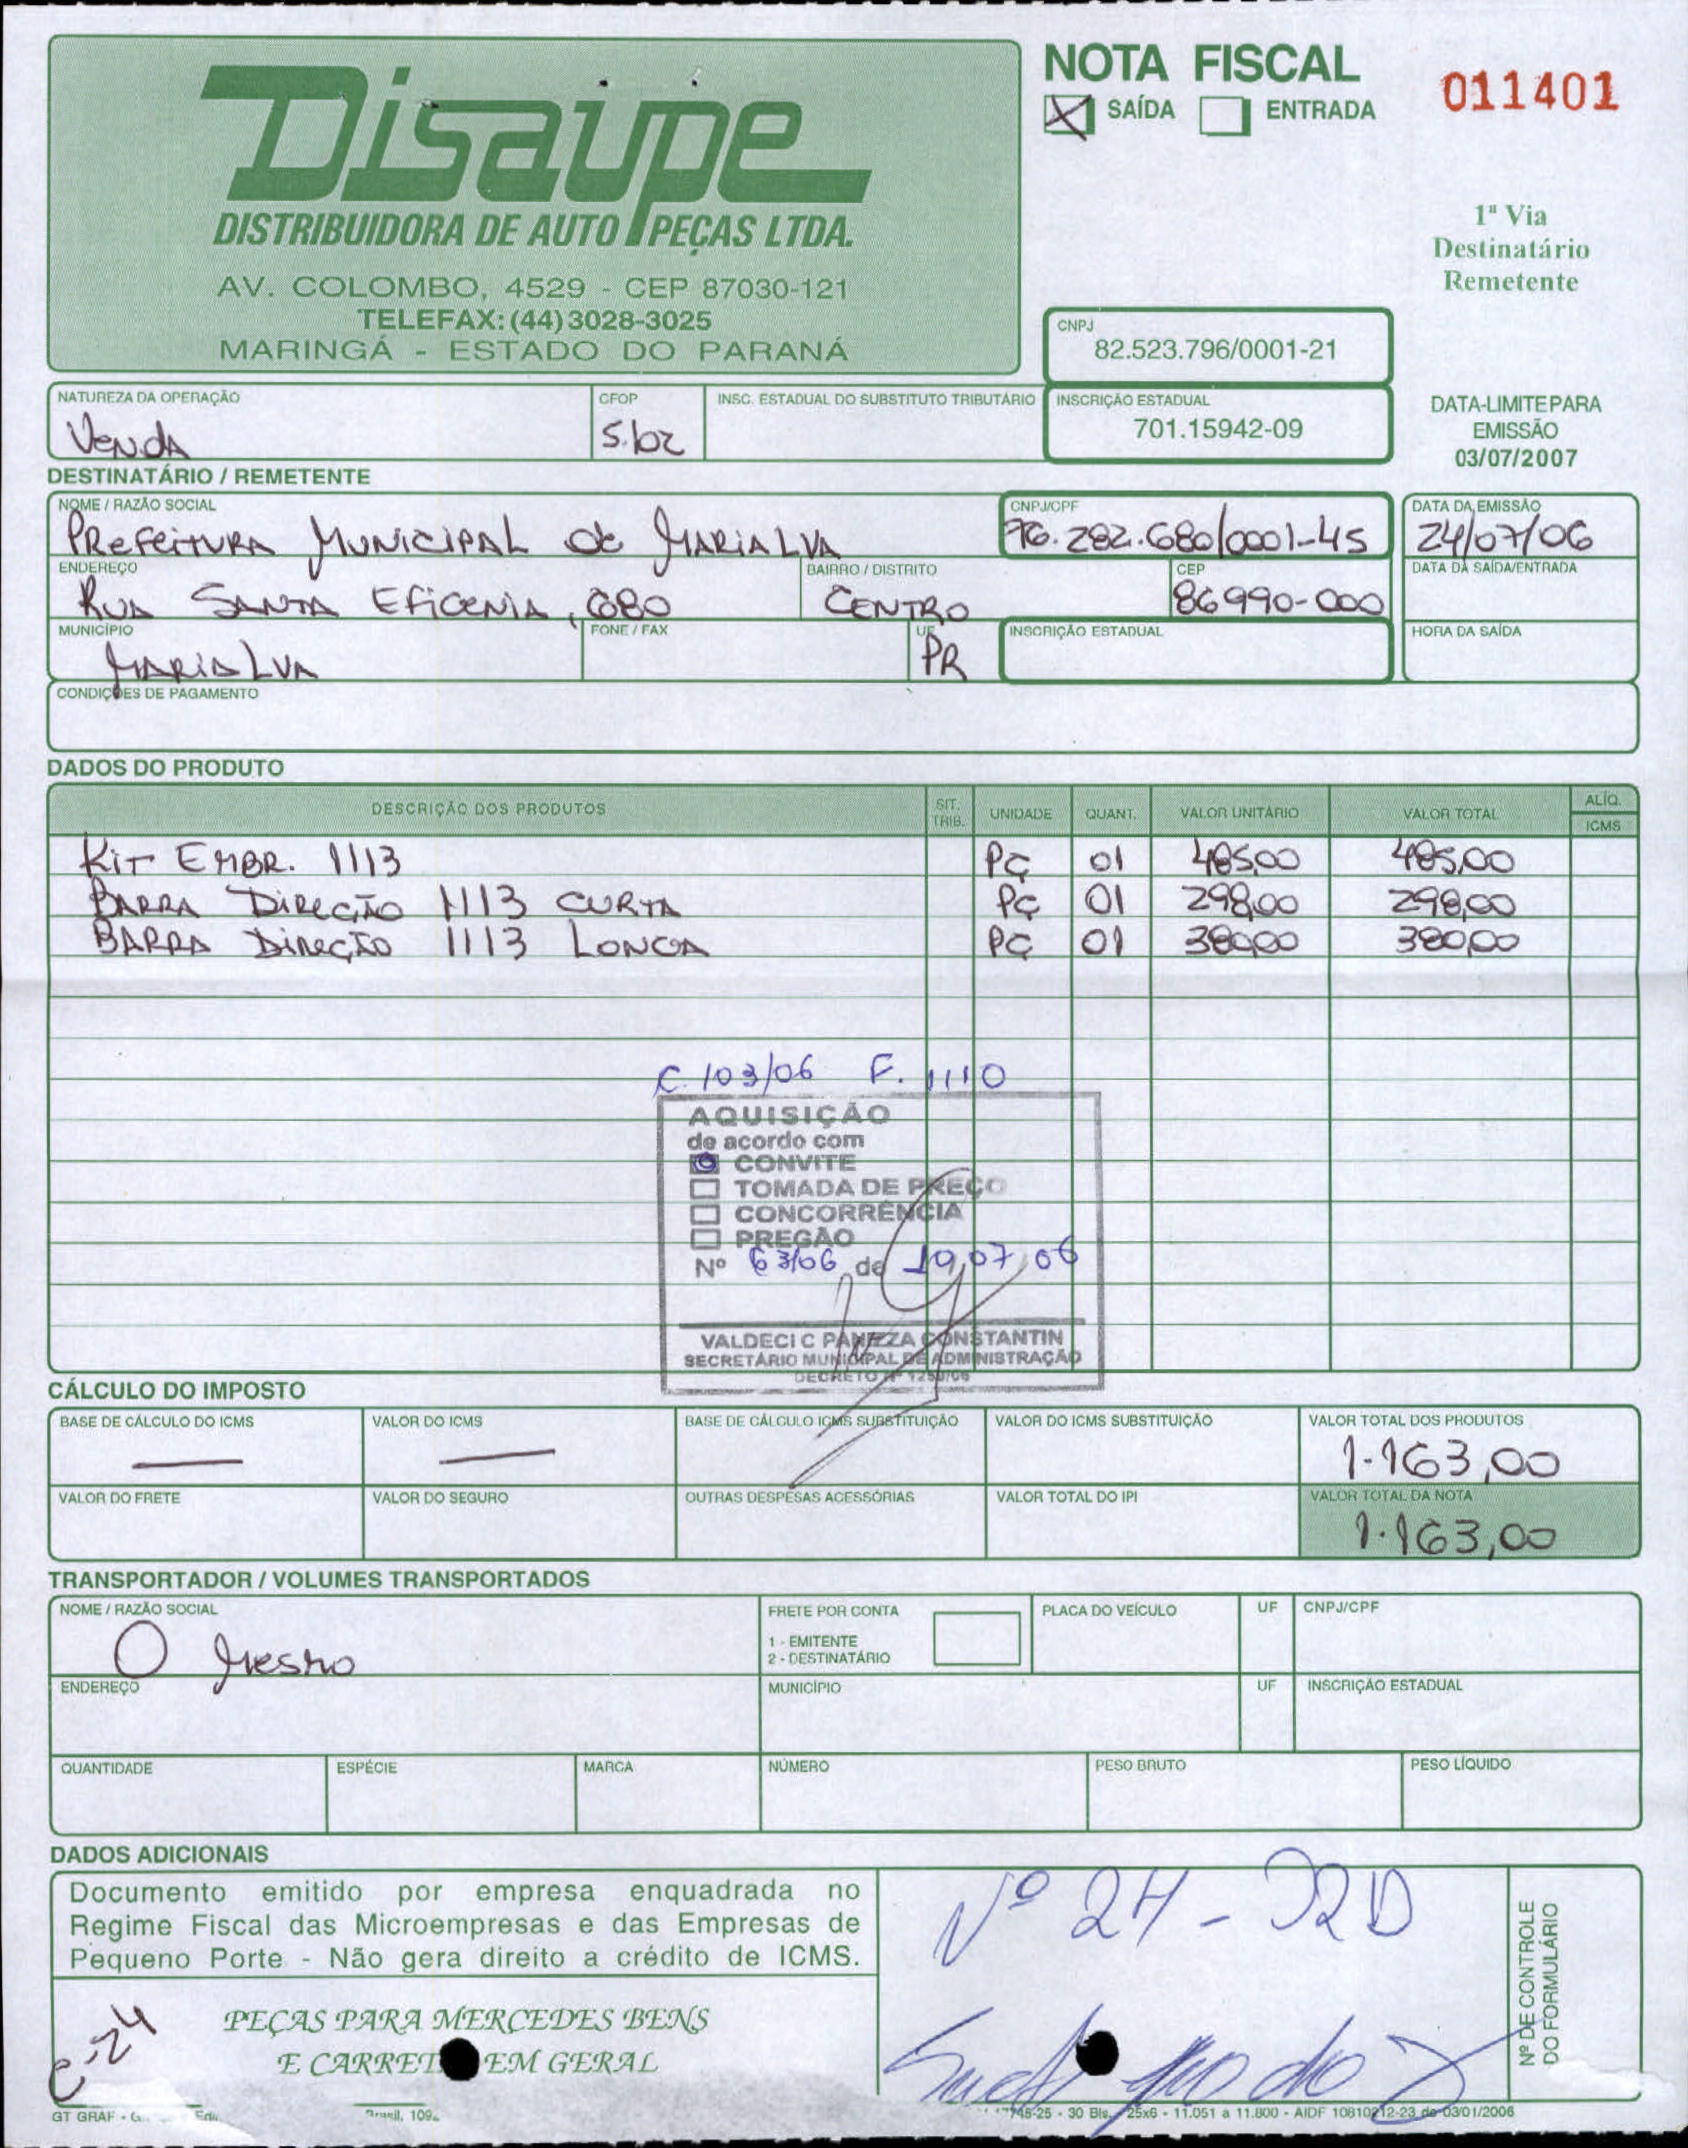 Disaupe
DISTRIBUIDORA DE AUTO PEÇAS LTDA.
AV. COLOMBO, 4529 - CEP 87030-121
TELEFAX: (44) 3028-3025
MARINGÁ - ESTADO DO PARANÁ
NOTA FISCAL
011401
SAÍDA ENTRADA
1ª Via
Destinatário
Remetente
CNPJ
82.523.796/0001-21
NATUREZA DA OPERAÇÃO CFOP INSC. ESTADUAL DO SUBSTITUTO TRIBUTÁRIO INSCRIÇÃO ESTADUAL
Venda 5.102 701.15942-09
DATA-LIMITE PARA
EMISSÃO
03/07/2007
DESTINATÁRIO / REMETENTE
NOME / RAZÃO SOCIAL CNPJ/CPF DATA DA EMISSÃO
Prefeitura Municipal de Marialva 76.282.680/0001-45 24/07/06
ENDEREÇO BAIRRO / DISTRITO CEP DATA DA SAÍDA/ENTRADA
Rua Santa Eficenia, 680 Centro 86990-000
MUNICÍPIO FONE / FAX UF INSCRIÇÃO ESTADUAL HORA DA SAÍDA
Marialva PR
CONDIÇÕES DE PAGAMENTO
DADOS DO PRODUTO
DESCRIÇÃO DOS PRODUTOS SIT. TRIB. UNIDADE QUANT. VALOR UNITÁRIO VALOR TOTAL ALÍQ. ICMS
Kit Embr. 1113 Pç 01 485,00 485,00
Barra Direção 1113 Curta Pç 01 298,00 298,00
Barra Direção 1113 Longa Pç 01 380,00 380,00
C. 103/06 F. 1110
AQUISIÇÃO
de acordo com
CONVITE
TOMADA DE PREÇO
CONCORRÊNCIA
PREGÃO
Nº 63/06 de 19,07,06
VALDECI C PANEZZA CONSTANTIN
SECRETÁRIO MUNICIPAL DE ADMINISTRAÇÃO
DECRETO Nº
CÁLCULO DO IMPOSTO
BASE DE CÁLCULO DO ICMS VALOR DO ICMS BASE DE CÁLCULO ICMS SUBSTITUIÇÃO VALOR DO ICMS SUBSTITUIÇÃO VALOR TOTAL DOS PRODUTOS
1.163,00
VALOR DO FRETE VALOR DO SEGURO OUTRAS DESPESAS ACESSÓRIAS VALOR TOTAL DO IPI VALOR TOTAL DA NOTA
1.163,00
TRANSPORTADOR / VOLUMES TRANSPORTADOS
NOME / RAZÃO SOCIAL FRETE POR CONTA PLACA DO VEÍCULO UF CNPJ/CPF
O Mesmo
1 - EMITENTE
2 - DESTINATÁRIO
ENDEREÇO MUNICÍPIO UF INSCRIÇÃO ESTADUAL
QUANTIDADE ESPÉCIE MARCA NÚMERO PESO BRUTO PESO LÍQUIDO
DADOS ADICIONAIS
Documento emitido por empresa enquadrada no
Regime Fiscal das Microempresas e das Empresas de
Pequeno Porte - Não gera direito a crédito de ICMS.
Nº 24 -
Nº DE CONTROLE
DO FORMULÁRIO
C-24
PEÇAS PARA MERCEDES BENS
E EM GERAL
GT GRAF
Brasil,
- 30 Bls. 25x6 - 11.051 a 11.800 - AIDF de 03/01/2006